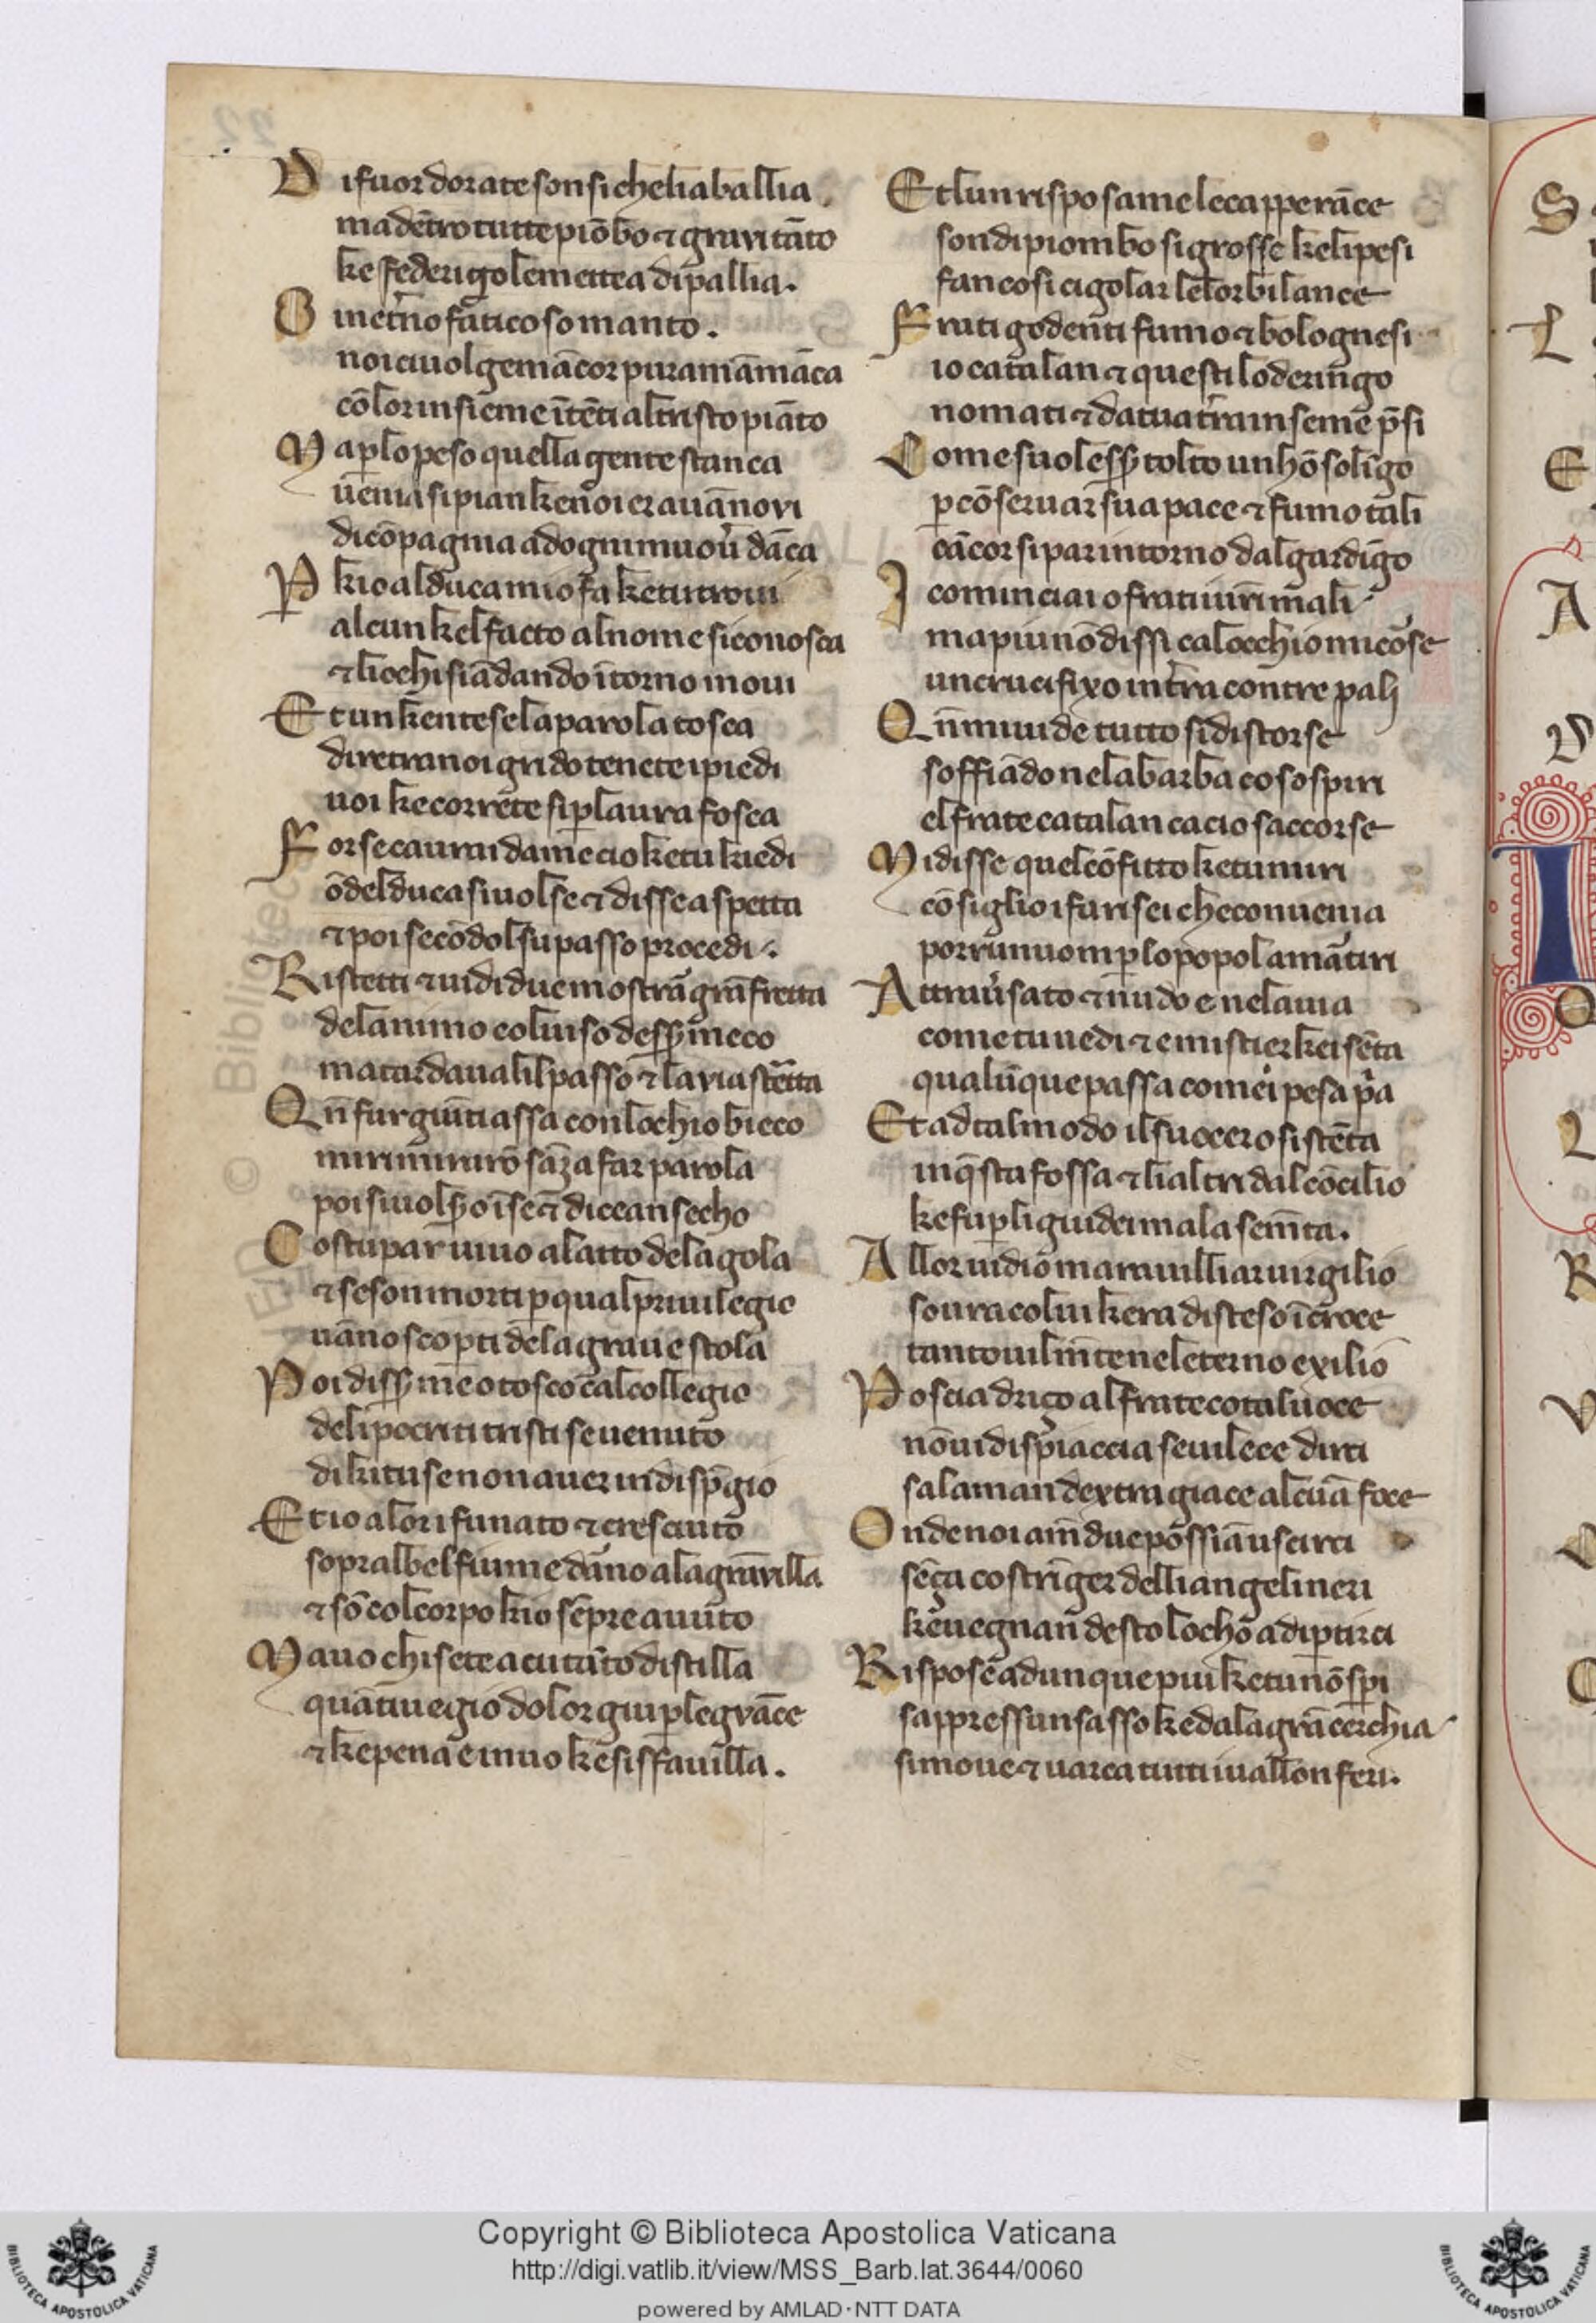 D ifuor dorate son si cheli aballia
ma dētro tutte piōbo ⁊ gravi tāto
ke federigo le mettea di pallia.
O inet̄no fatico so manto.
noi ci uolgemācor pur amāmāca
cō lor insieme ītēti al tristo piāto
M a p̲ lo peso quella gente stanca
uenia si pian ke noi erauā novi
di cōpagnia ad ogni muou̓ dāca
P̲ kio al duca mio fa ke tu troui
alcun kel facto al nome si conosca
⁊ li ochi si ādando ītorno moui
E t un kentese la parola tosca
diretra noi grido tenete i piedi
uoi ke correte si p̲ laura fosca
F orse caurai da me cio ke tu kiedi
ōdel duca si uolse ⁊ disse aspetta
⁊ poi secōdol su passo procedi.
R istetti ⁊ uidi due mostrā grā fretta
de lanimo col uiso dess̓ meco
ma tardauali il passo ⁊ la via strētta
Q n̄ fur giunti assa con lochio bieco
mirimirarō sāza far parola
poi si uols̓o ī se ⁊ dicean secho
C ostu par uiuo alatto de la gola
⁊ se son morti p̲ qual priuilegio
uāno scop̲ti de la graue stola
P oi diss̓ me o tosco cal collegio
de lipocriti tristi se uenuto
di ki tu se non auer in dispgio
E t io a lor i fu nato ⁊ cresciuto
sopral bel fiume darno a la grā villa
⁊ sō col corpo kio sēpre auuto
M a uo chi sete a cui tāto distilla
quātiuegio dolor giu p̲ le gvāce
⁊ ke pena e in uo ke si sfauilla.
E t lun rispose a me le cappe rāce
son di piombo si grosse ke li pesi
fan cosi cigolar le lor bilance
F rati godenti fumo ⁊ bolognesi
io catalan ⁊ questi loderingo
nomati ⁊ da tua terra inseme p̄si
C ome suol ess̓ tolto un hō soligo
p̲ cōseruar sua pace ⁊ fumo tali
cācor si par intorno dal gardīgo
I cominciai o frati iur̄i mali
ma piu nō dissi cal occhio mi cōse
un crucifixo in terra con tre pali
Q n̄ mi uide tutto si distorse
soffiādo nela barba co sospiri
el frate catalan cacio saccorse
M i disse quel cōfitto ke tu miri
cōsiglio i farisei che conuenia
porre un uom p̲ lo popol a mātiri
A ttrau̓sato ⁊ nudo e nela uia
come tu uedi ⁊ e mistier kei sēta
qualūque passa come i pesa p̓a
E t ad tal modo il suocero si stēta
in q̄sta fossa ⁊ li altri dal cōcilio
ke fu p̲ li giudei mala sem̄ta.
A llor uidio marauilliar uirgilio
soura colui kera disteso ī croce
tanto uilm̄te nel eterno exilio
P oscia driço al frate cotal uoce
nō ui dispiaccia se uilece dirci
sa la man dextra giace alcūa foce
O nde noi am̄due possiā uscirci
sēça costrīger delli angeli neri
ke uegnan desto locho adip̲tirci
R ispose adunque piu ke tu nō sp̲i
sappressun sasso ke da la grā cerchia
si moue ⁊ uarca tutti i uallon feri.
Copyright © Biblioteca Apostolica Vaticana
http://digi.vatlib.it/view/MSS_Barb.lat.3644/0060
powered by AMLAD·NTT DATA